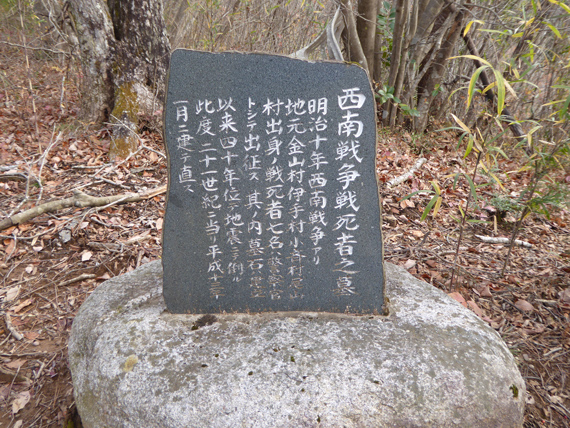 西南戦争戦死者之墓
明治十年西南戦争アリ
地元金山村伊手村小斉村尾山
村出身ノ戦死者七名
トシテ出征ス其ノ内墓石
以来四十年位デ地震ニテ倒ル
此度二十一世紀ニ当リ平成十三年
一月ニ建テ直ス